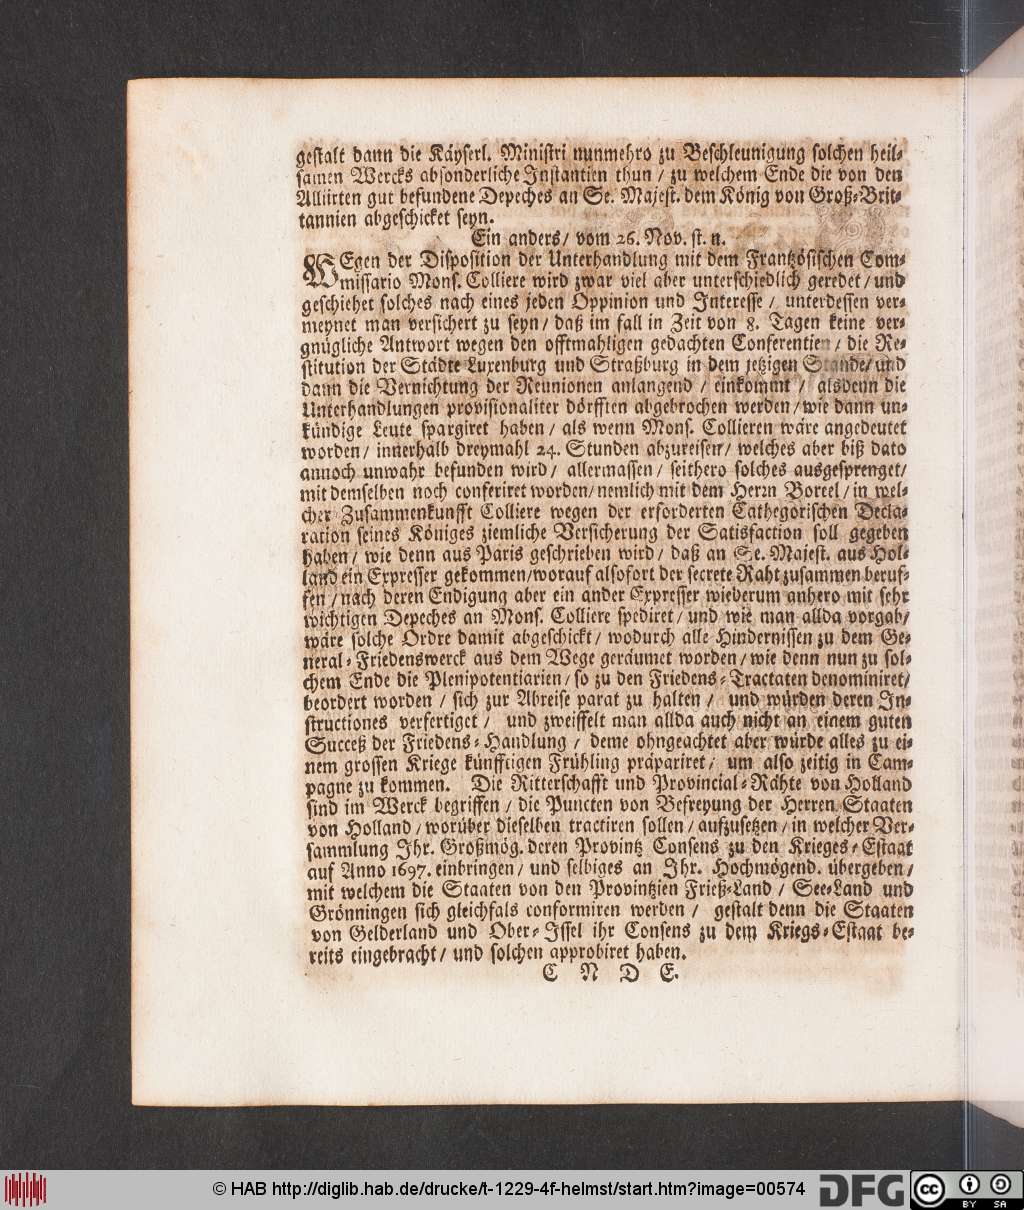 gestalt dann die Käyserl. Ministri nunmehro zu Beschleunigung solchen heil-
samen Wercks absonderliche Instantien thun / zu welchem Ende die von den
Alliirten gut befundene Depeches an Se. Majest. dem König von Groß-Brit-
tannien abgeschicket seyn.
Ein anders / vom 26. Nov. st. n.
WEgen der Disposition der Unterhandlung mit dem Frantzösischen Com-
missario Mons. Colliere wird zwar viel aber unterschiedlich geredet / und
geschiehet solches nach eines jeden Oppinion und Interesse / unterdessen ver-
meynet man versichert zu seyn / daß im fall in Zeit von 8. Tagen keine ver-
gnügliche Antwort wegen den offtmahligen gedachten Conferentien / die Re-
stitution der Städte Luxenburg und Straßburg in dem jetzigen Stande / und
dann die Vernichtung der Reunionen anlangend / einkommt / alsdenn die
Unterhandlungen provisionaliter dörfften abgebrochen werden / wie dann un-
kündige Leute spargiret haben / als wenn Mons. Collieren wäre angedeutet
worden / innerhalb dreymahl 24. Stunden abzureisen / welches aber biß dato
annoch unwahr befunden wird / allermassen / seithero solches ausgesprenget /
mit demselben noch conferiret worden / nemlich mit dem Herrn Boreel / in wel-
cher Zusammenkunfft Colliere wegen der erforderten Cathegorischen Decla-
ration seines Königes ziemliche Versicherung der Satisfaction soll gegeben
haben / wie denn aus Paris geschrieben wird / daß an Se. Majest. aus Hol-
land ein Expresser gekommen / worauf alsofort der secrete Raht zusammen beruf-
fen / nach deren Endigung aber ein ander Expresser wieberum anhero mit sehr
wichtigen Depeches an Mons. Colliere spediret / und wie man allda vorgab /
wäre solche Ordre damit abgeschickt / wodurch alle Hindernissen zu dem Ge-
neral-Friedenswerck aus dem Wege geräumet worden / wie denn nun zu sol-
chem Ende die Plenipotentiarien / so zu den Friedens-Tractaten denominiret /
beordert worden / sich zur Abreise parat zu halten / und würden deren In-
structiones verfertiget / und zweiffelt man allda auch nicht an einem guten
Succeß der Friedens-Handlung / deme ohngeachtet aber würde alles zu ei-
nem grossen Kriege künfftigen Frühling präpariret / um also zeitig in Cam-
pagne zu kommen. Die Ritterschafft und Provincial-Rähte von Holland
sind im Werck begriffen / die Puncten von Befreyung der Herren Staaten
von Holland / worüber dieselben tractiren sollen / aufzusetzen / in welcher Ver-
sammlung Ihr. Großmög. deren Provintz Consens zu den Krieges-Estaat
auf Anno 1697. einbringen / und selbiges an Ihr. Hochmögend. übergeben /
mit welchem die Staaten von den Provintzien Frieß-Land / See-Land und
Grönningen sich gleichfals conformiren werden / gestalt denn die Staaten
von Gelderland und Ober-Issel ihr Consens zu dem Kriegs-Estaat be-
reits eingebracht / und solchen approbiret haben.
E N D E.
© HAB http://diglib.hab.de/drucke/t-1229-4f-helmst/start.htm?image=00574
DFG
cc BY SA